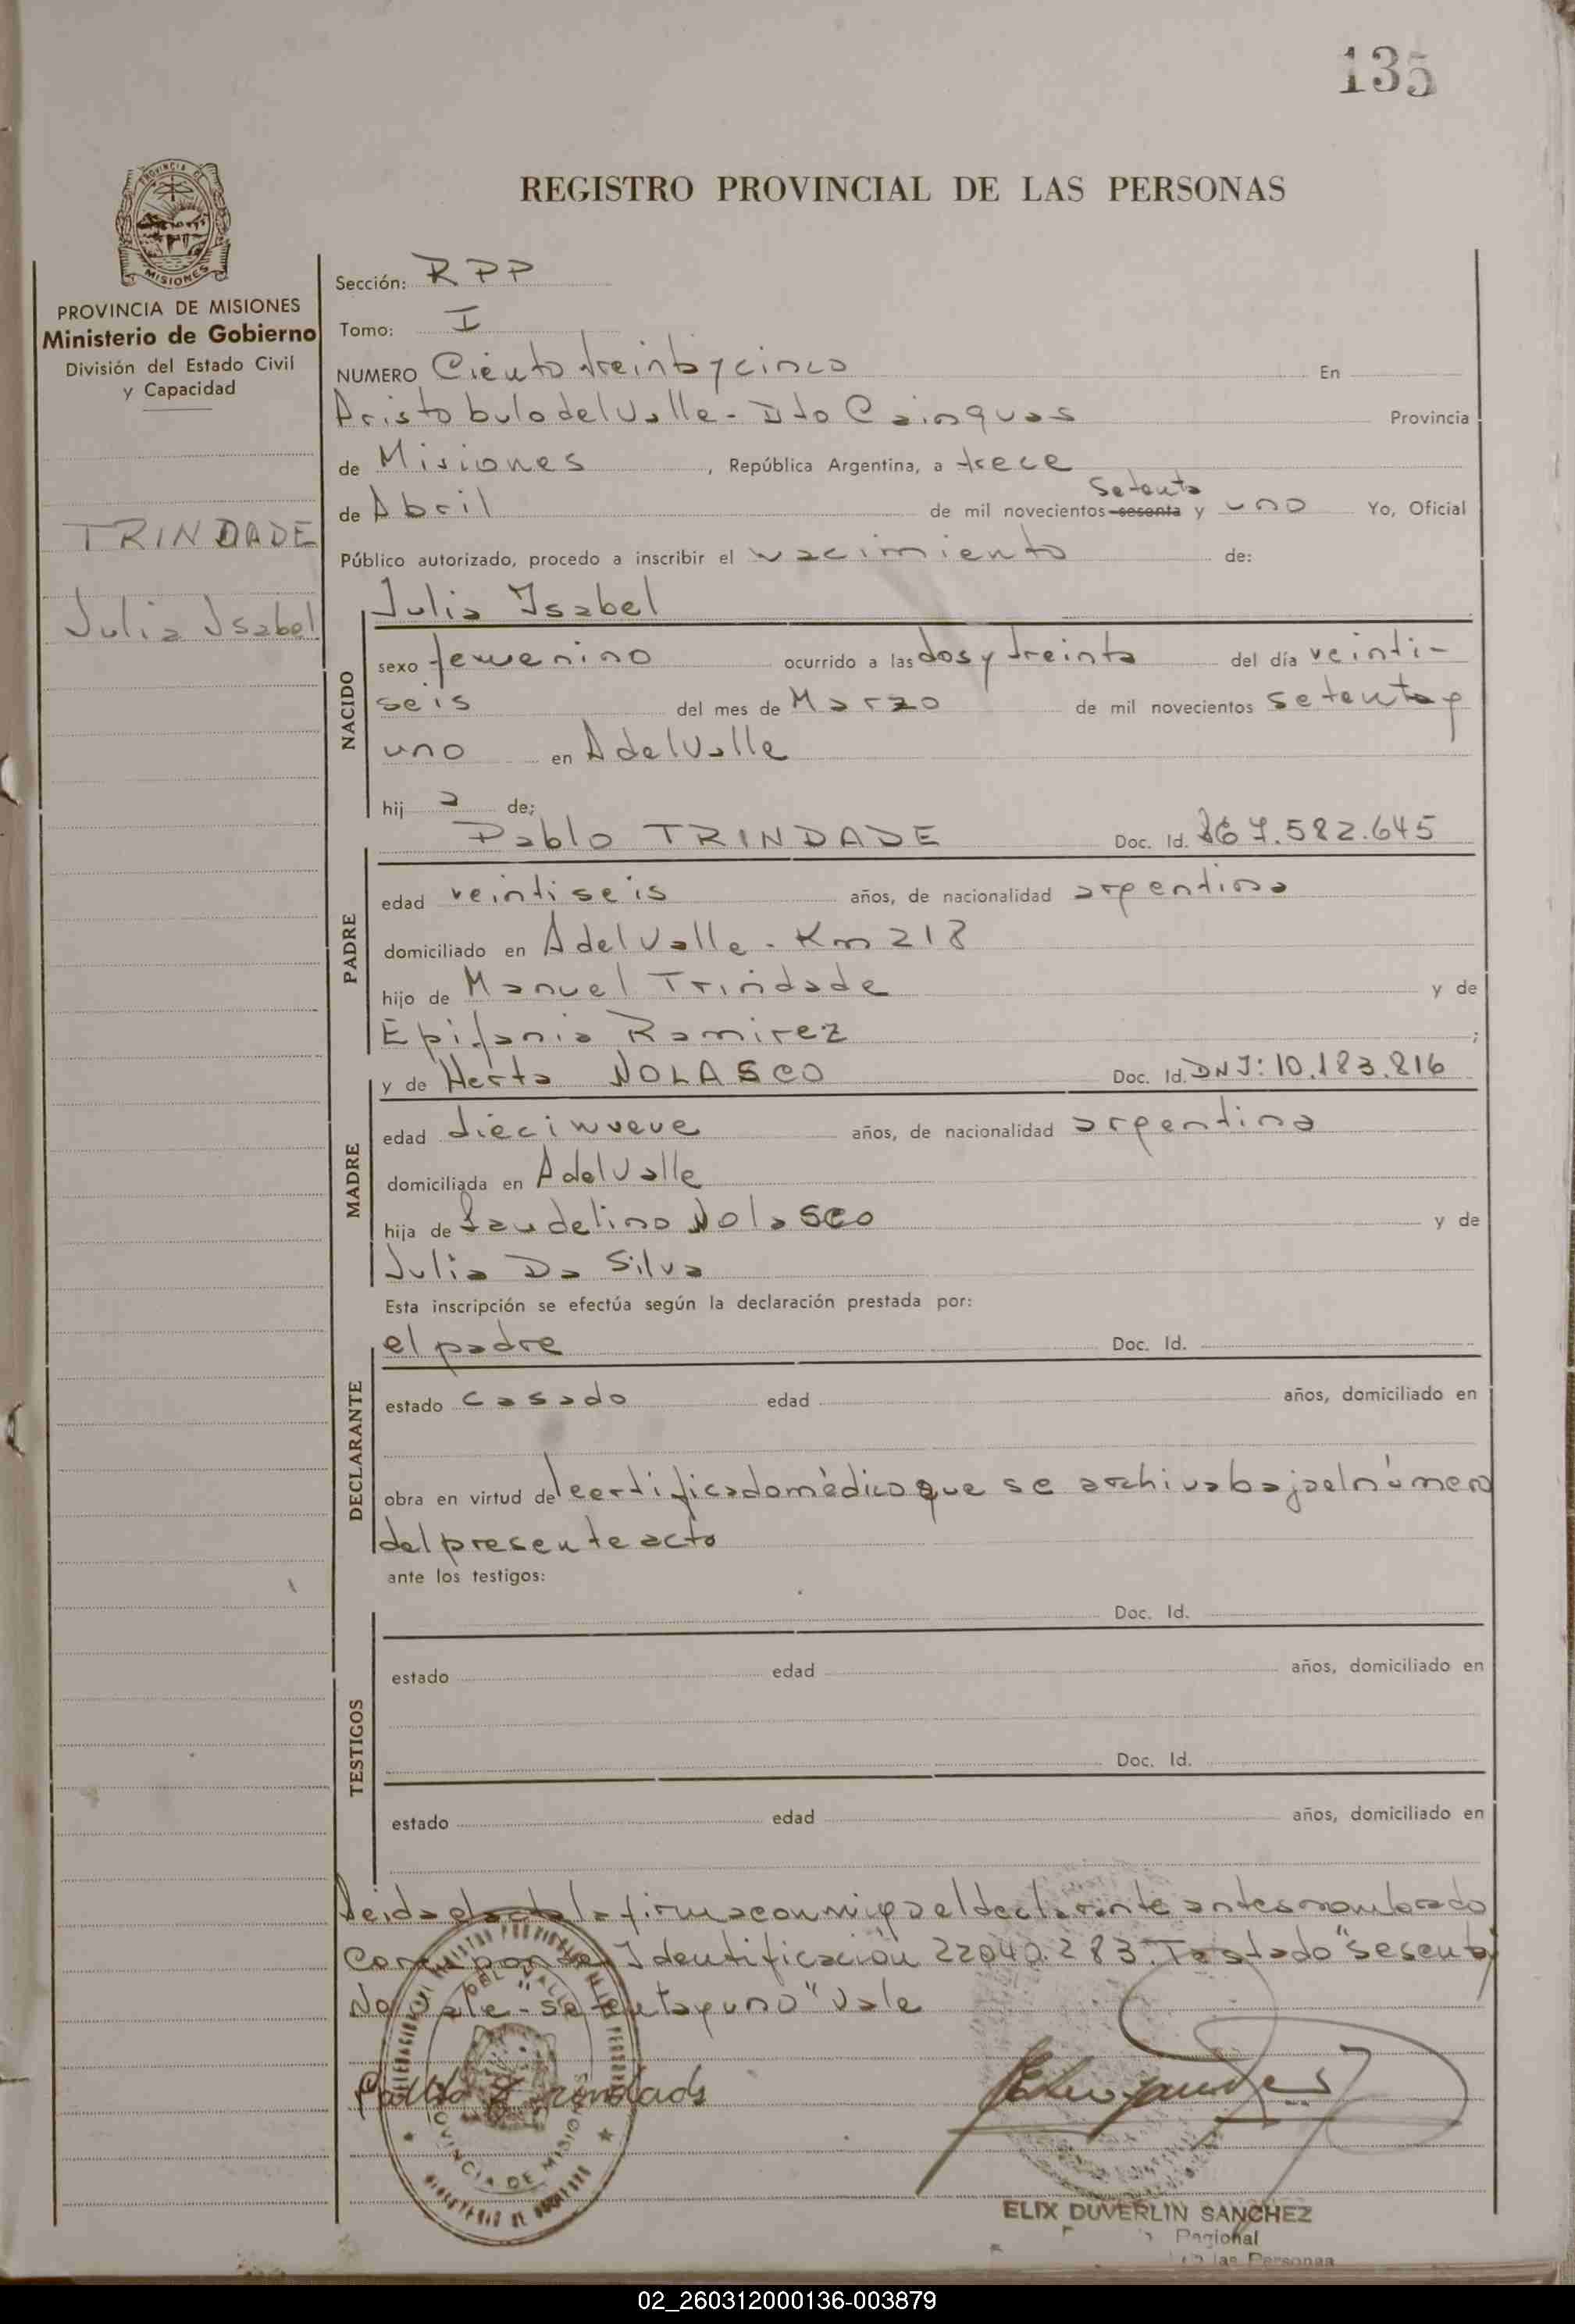 135
REGISTRO PROVINCIAL DE LAS PERSONAS
PROVINCIA DE MISIONES
Ministerio de Gobierno
División del Estado Civil
y Capacidad
TRINDADE
Julia Isabel
Sección: RPP
Tomo: I
NUMERO Ciento treinta y cinco En
Aristobulo del Valle - Dto Cainguas Provincia
de Misiones, República Argentina, a trece
setenta
de Abril de mil novecientos sesenta y uno Yo, Oficial
Público autorizado, procedo a inscribir el nacimiento de:
NACIDO
Julia Isabel
sexo femenino ocurrido a las dos y treinta del día veinti-
seis del mes de Marzo de mil novecientos setenta y
uno en A del Valle
hij a de;
PADRE
Pablo TRINDADE Doc. Id. 7.582.645
edad veintiseis años, de nacionalidad argentina
domiciliado en A del Valle - Km 218
hijo de Manuel Trindade y de
Epifania Ramirez ;
MADRE
y de Herta NOLASCO Doc. Id. DNI: 10.183.816
edad diecinueve años, de nacionalidad argentina
domiciliada en A del Valle
hija de Laudelino Nolasco y de
Julia Da Silva
Esta inscripción se efectúa según la declaración prestada por:
DECLARANTE
el padre Doc. Id.
estado casado edad años, domiciliado en
obra en virtud del certificado médico que se archiva bajo el número
del presente acto
ante los testigos:
TESTIGOS
Doc. Id.
estado edad años, domiciliado en
Doc. Id.
estado edad años, domiciliado en
Leida el acta la firma conmigo el declarante antes nombrado
Corresponde Identificación 22040.283. Testado "sesenta y
No vale - "setenta y uno" Vale
Pablo Trindade
ELIX DUVERLIN SANCHEZ
Regional
las Personas
02_260312000136-003879